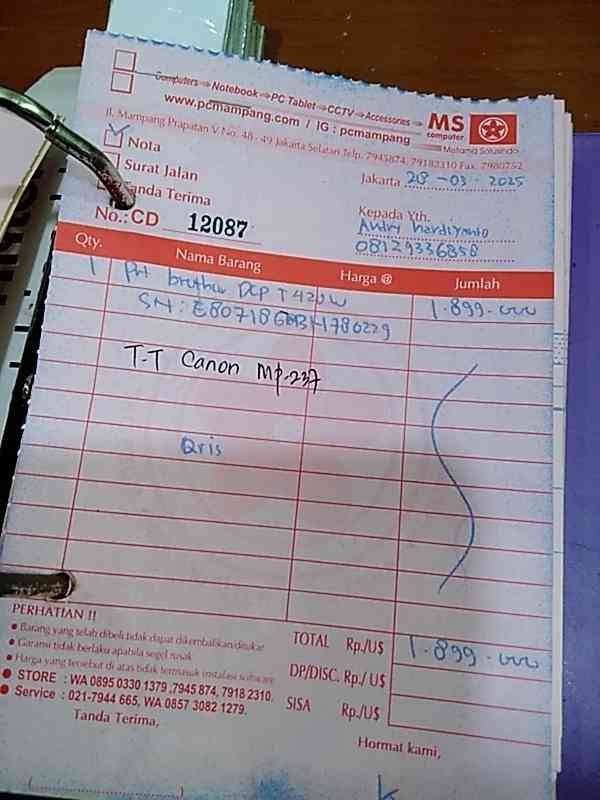 Computers ⇒ Notebook ⇒ PC Tablet ⇒ CCTV ⇒ Accessories ⇒
www.pcmampang.com / IG : pcmampang
MS
computer
Metama Solusindo
Jl. Mampang Prapatan V No. 48 - 49 Jakarta Selatan Telp. 7945874, 79182310 Fax. 7980752
Nota
Surat Jalan
Tanda Terima
No.: CD 12087
Jakarta 28-03-2025
Kepada Yth.
Andry hardiyanto
08129336858
Qty. Nama Barang Harga @ Jumlah
1 Prt brother DCP T420W 1.899.000
SN: E80718G 1780229
T.T Canon Mp.237
Qris
PERHATIAN !!
• Barang yang telah dibeli tidak dapat dikembalikan/ditukar
• Garansi tidak berlaku apabila segel rusak
• Harga yang tersebut di atas tidak termasuk instalasi software
• STORE : WA 0895 0330 1379 ,7945 874, 7918 2310.
• Service : 021-7944 665, WA 0857 3082 1279.
TOTAL Rp./U$ 1.899.000
DP/DISC. Rp./ U$
SISA Rp./U$
Tanda Terima,
Hormat kami,